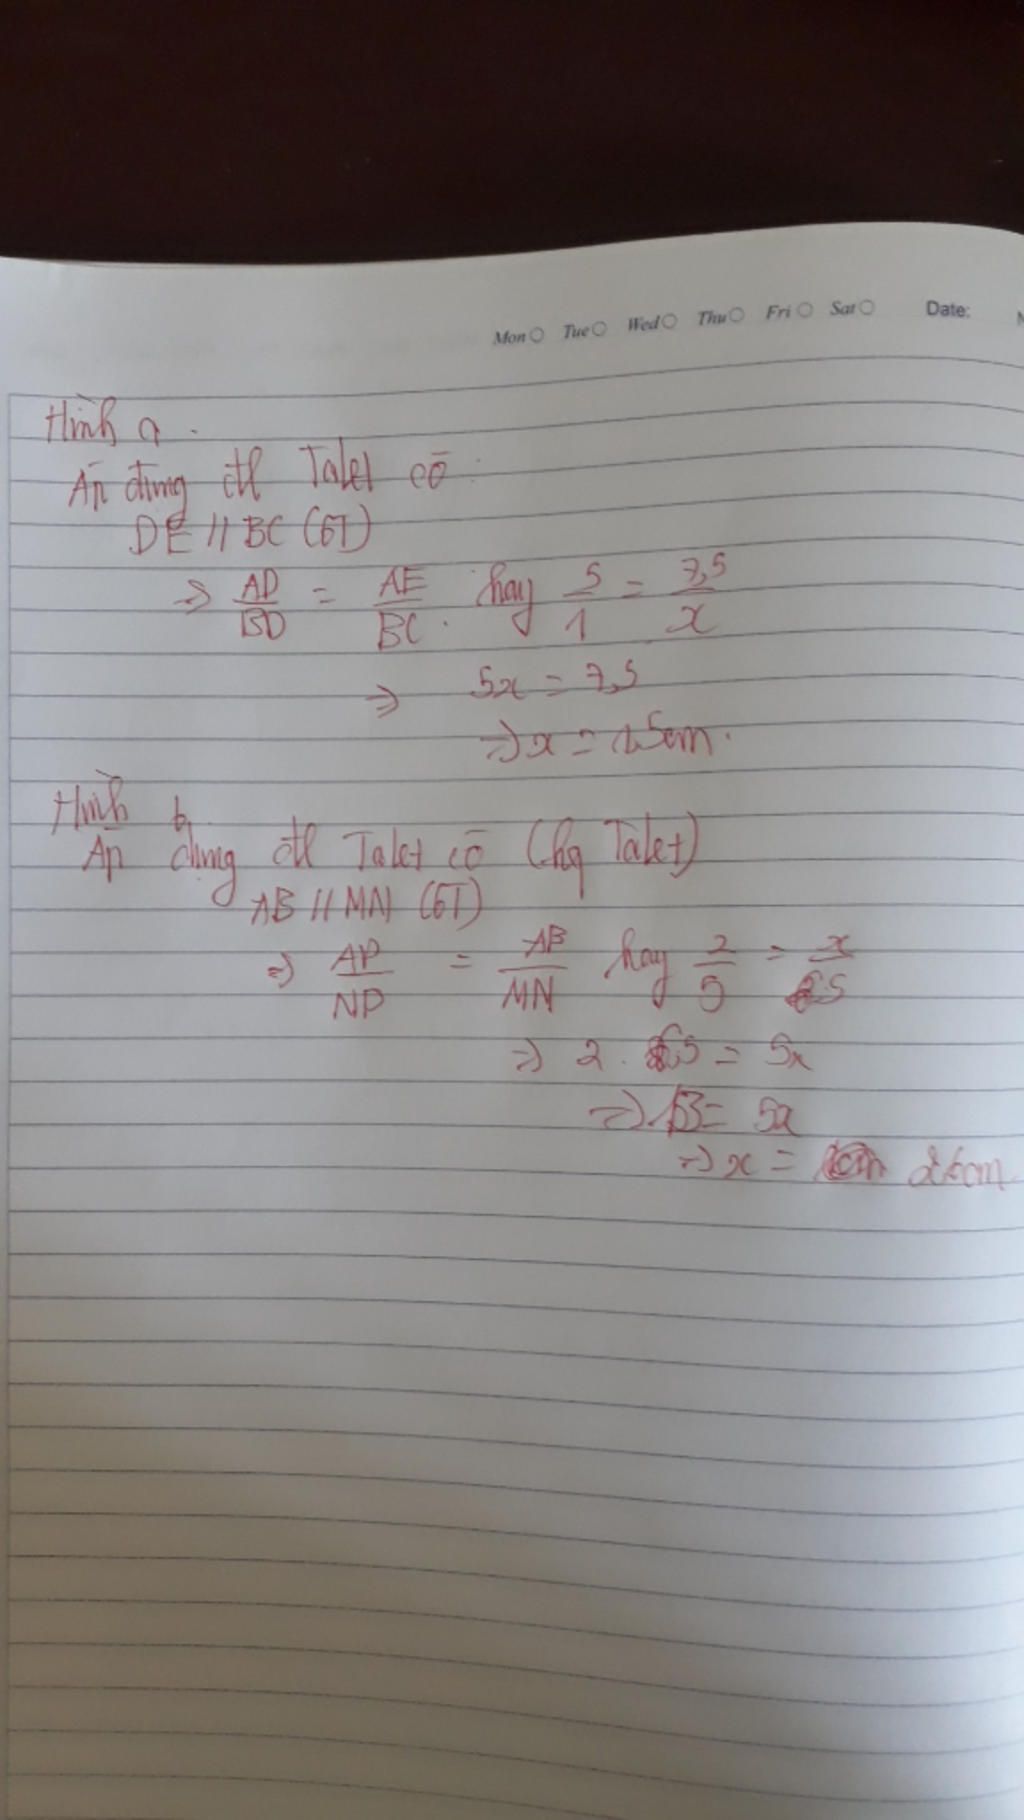 Mon Tue Wed Thu Fri Sat Date:
Hình a.
Áp dụng đl Talet có
DE // BC (GT)
⇒ AD/BD = AE/BC. hay 5/1 = 7,5/x
⇒ 5x = 7,5
⇒ x = 1,5cm.
Hình b,
Áp dụng đl Talet có (hq Talet)
AB // MN (GT)
⇒ AP/NP = AB/MN hay 2/5 = x/6,5
⇒ 2 . 6,5 = 5x
⇒ 13 = 5x
⇒ x = 2,6cm